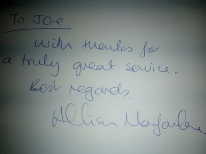 To Joe.
With thanks for
a truly great service.
Best regards.